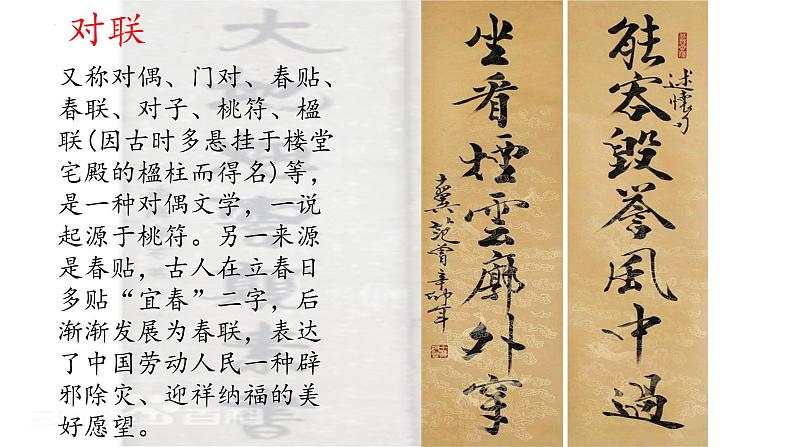 对联
又称对偶、门对、春贴、
春联、对子、桃符、楹
联(因古时多悬挂于楼堂
宅殿的楹柱而得名)等，
是一种对偶文学，一说
起源于桃符。另一来源
是春贴，古人在立春日
多贴“宜春”二字，后
渐渐发展为春联，表达
了中国劳动人民一种辟
邪除灾、迎祥纳福的美
好愿望。
能容毁誉风中过
述懐句
坐看烟雲廓外穿
十翼范曾辛卯年